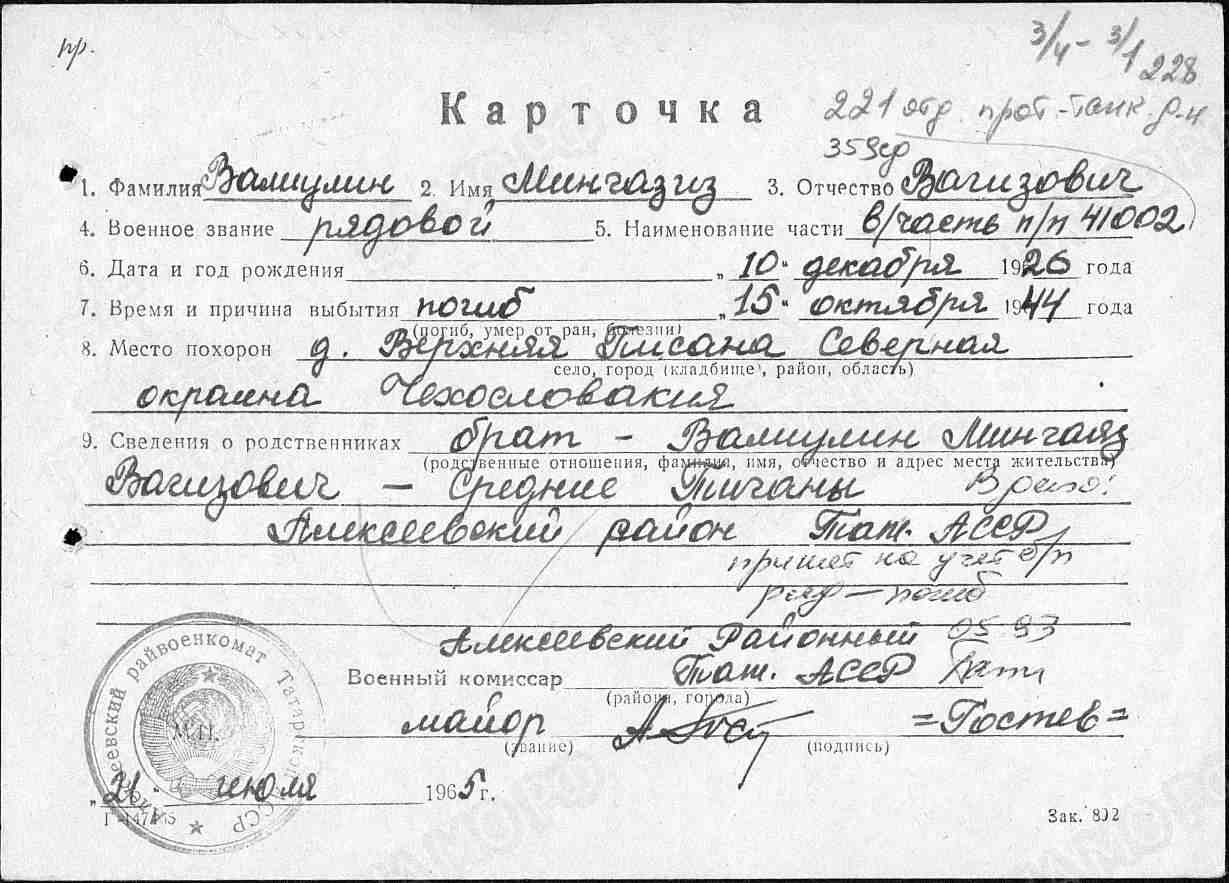 пр.
3/4 - 3/1 228
Карточка
221 отд прот-танк. д-н
359сд
1. Фамилия Валиулин 2. Имя Мингазиз 3. Отчество Вагизович
4. Военное звание рядовой 5. Наименование части в/часть п/п 41002
6. Дата и год рождения „10" декабря 1926 года
7. Время и причина выбытия погиб „15" октября 1944 года
(погиб, умер от ран, болезни)
8. Место похорон д. Верхняя Писана Северная
село, город (кладбище), район, область)
окраина Чехословакия
9. Сведения о родственниках брат - Валиулин Мингаяз
(родственные отношения, фамилия, имя, отчество и адрес места жительства)
Вагизович - Средние Тиганы
Алексеевский район Тат. АССР
на учет б/п
ряд - погиб
Алексеевский Районный
Военный комиссар Тат. АССР
(района, города)
майор =Гостев=
(звание) (подпись)
М.П.
Алексеевский райвоенкомат Татарской АССР
„21" июля 1965 г.
Зак. 802